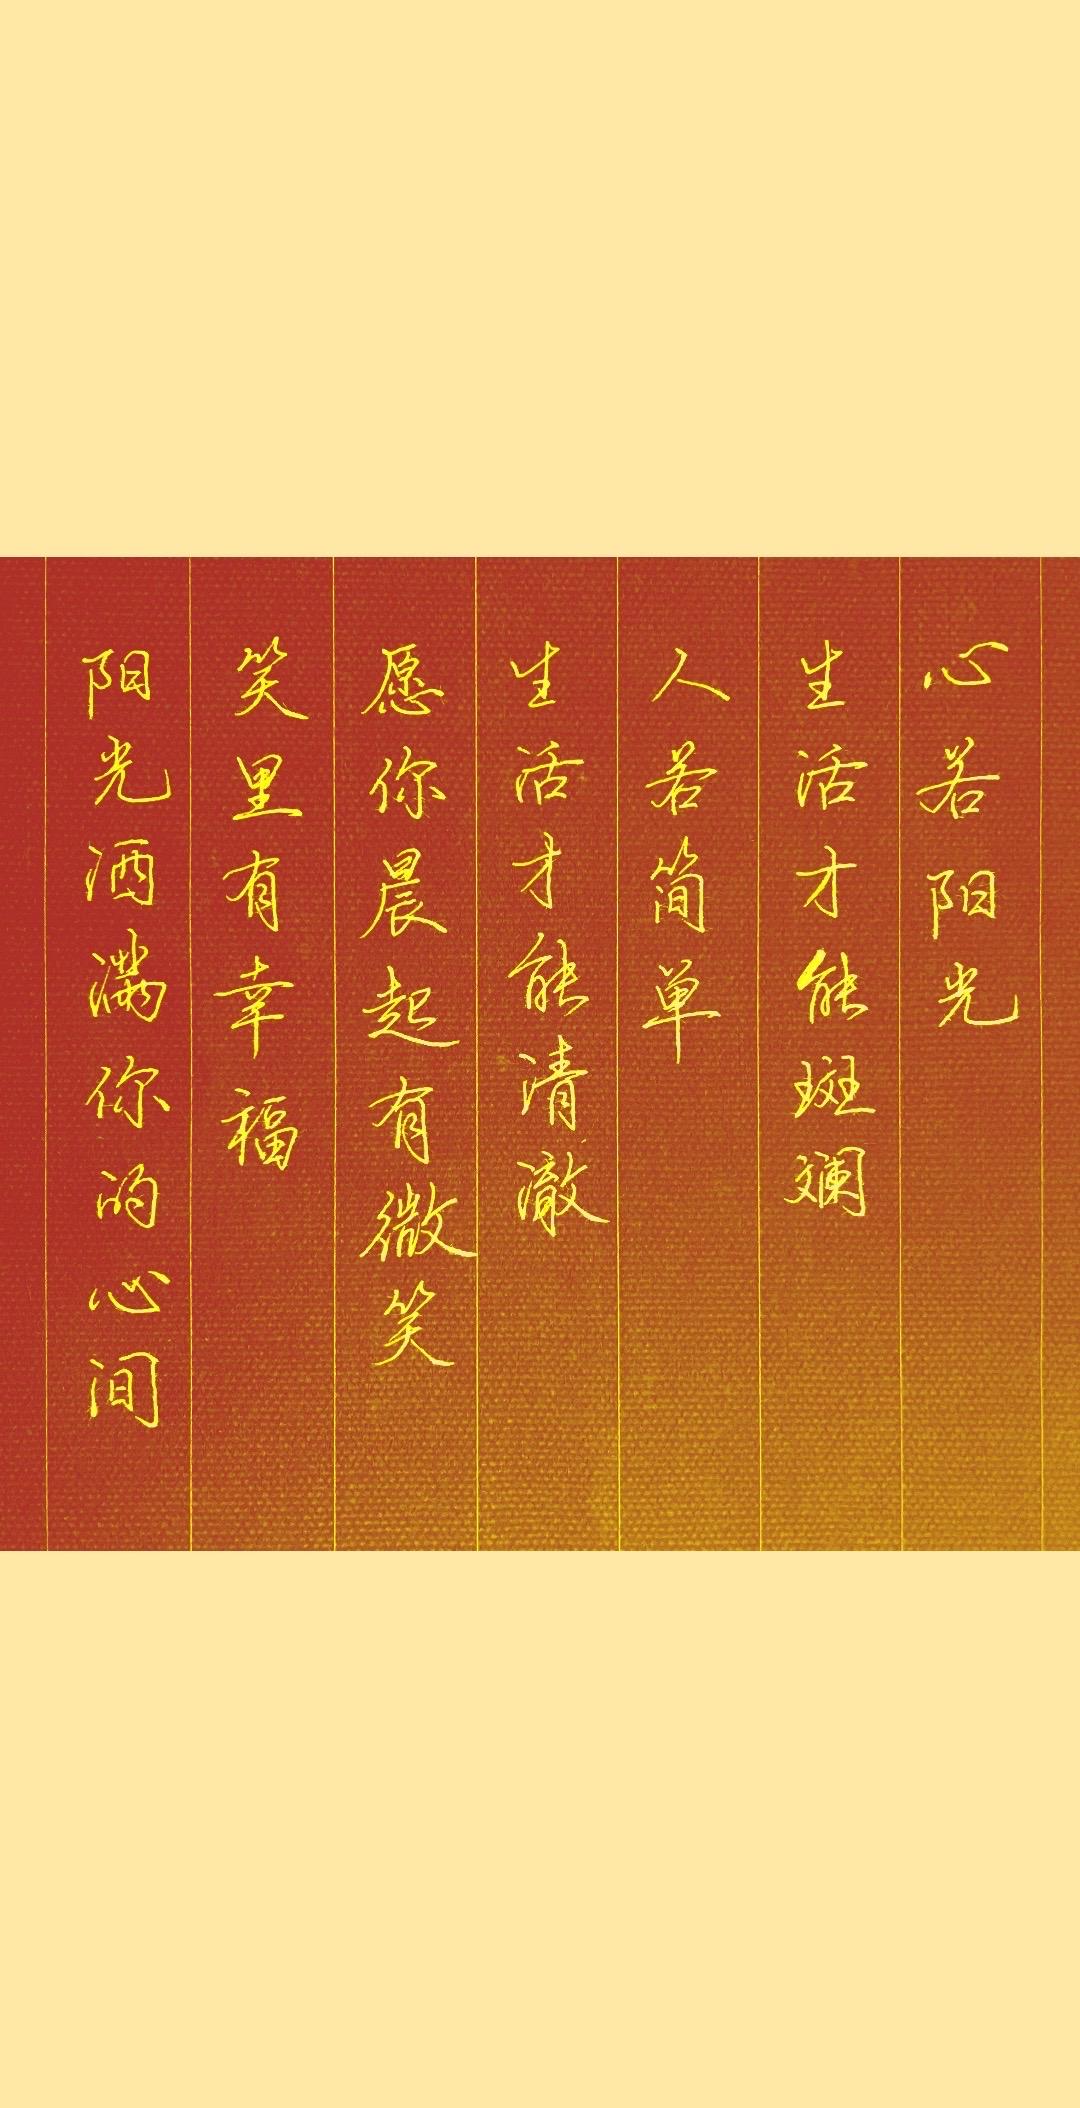 心若阳光
生活才能斑斓
人若简单
生活才能清澈
愿你晨起有微笑
笑里有幸福
阳光洒满你的心间